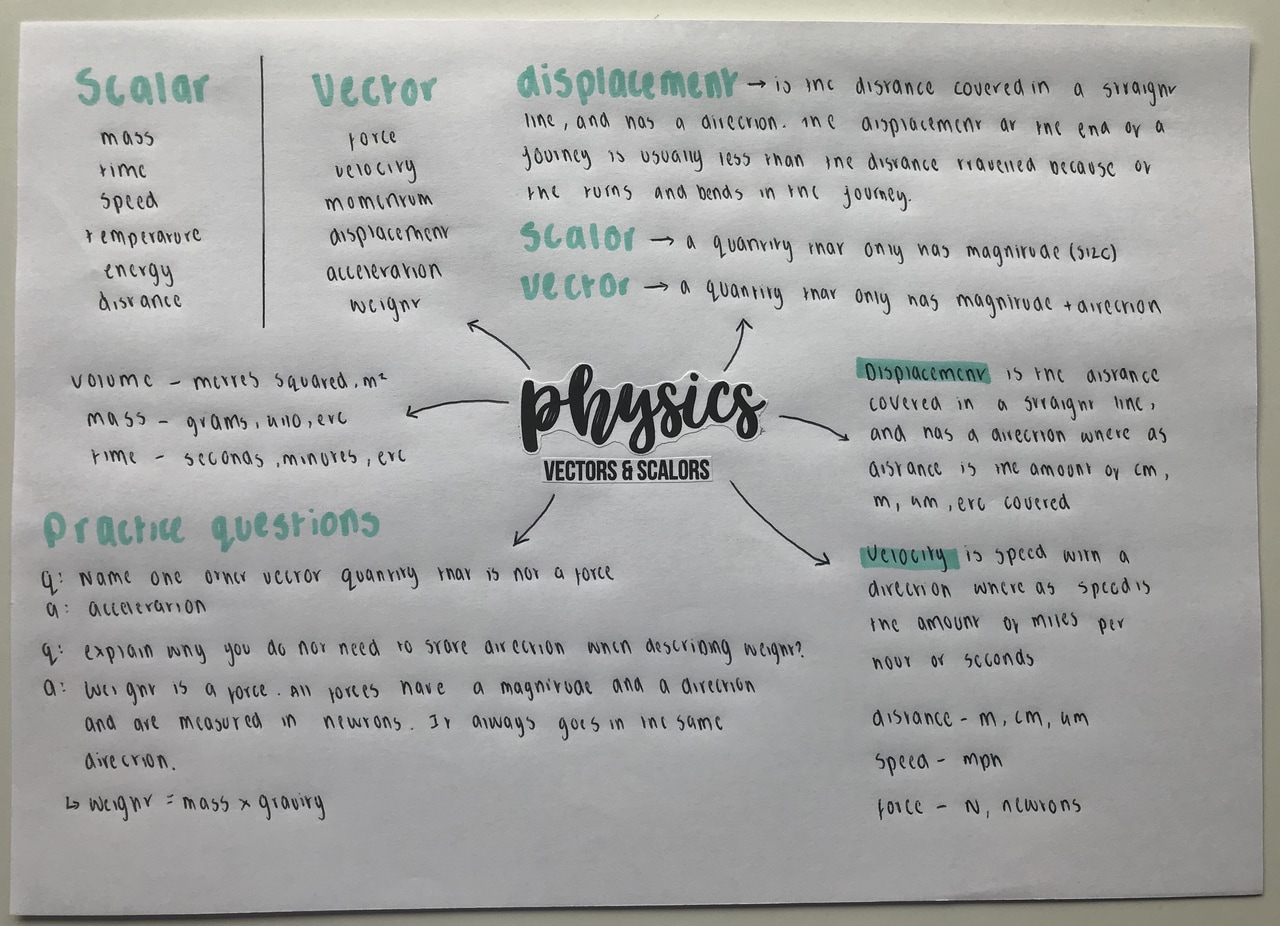 Scalar
mass
time
speed
temperature
energy
distance
Vector
force
velocity
momentum
displacement
acceleration
weight
displacement → is the distance covered in a straight
line, and has a direction. The displacement at the end of a
journey is usually less than the distance travelled because of
the turns and bends in the journey.
Scalor → a quantity that only has magnitude (size)
Vector → a quantity that only has magnitude + direction
volume - metres squared, m²
mass - grams, kilo, etc
time - seconds, minutes, etc
physics
VECTORS & SCALORS
Displacement is the distance
covered in a straight line,
and has a direction where as
distance is the amount of cm,
m, km, etc covered
Velocity is speed with a
direction where as speed is
the amount of miles per
hour or seconds
distance - m, cm, km
speed - mph
force - N, newtons
Practice questions
q: Name one other vector quantity that is not a force
a: acceleration
q: explain why you do not need to state direction when describing weight?
a: weight is a force. All forces have a magnitude and a direction
and are measured in newtons. It always goes in the same
direction.
↳ weight = mass × gravity